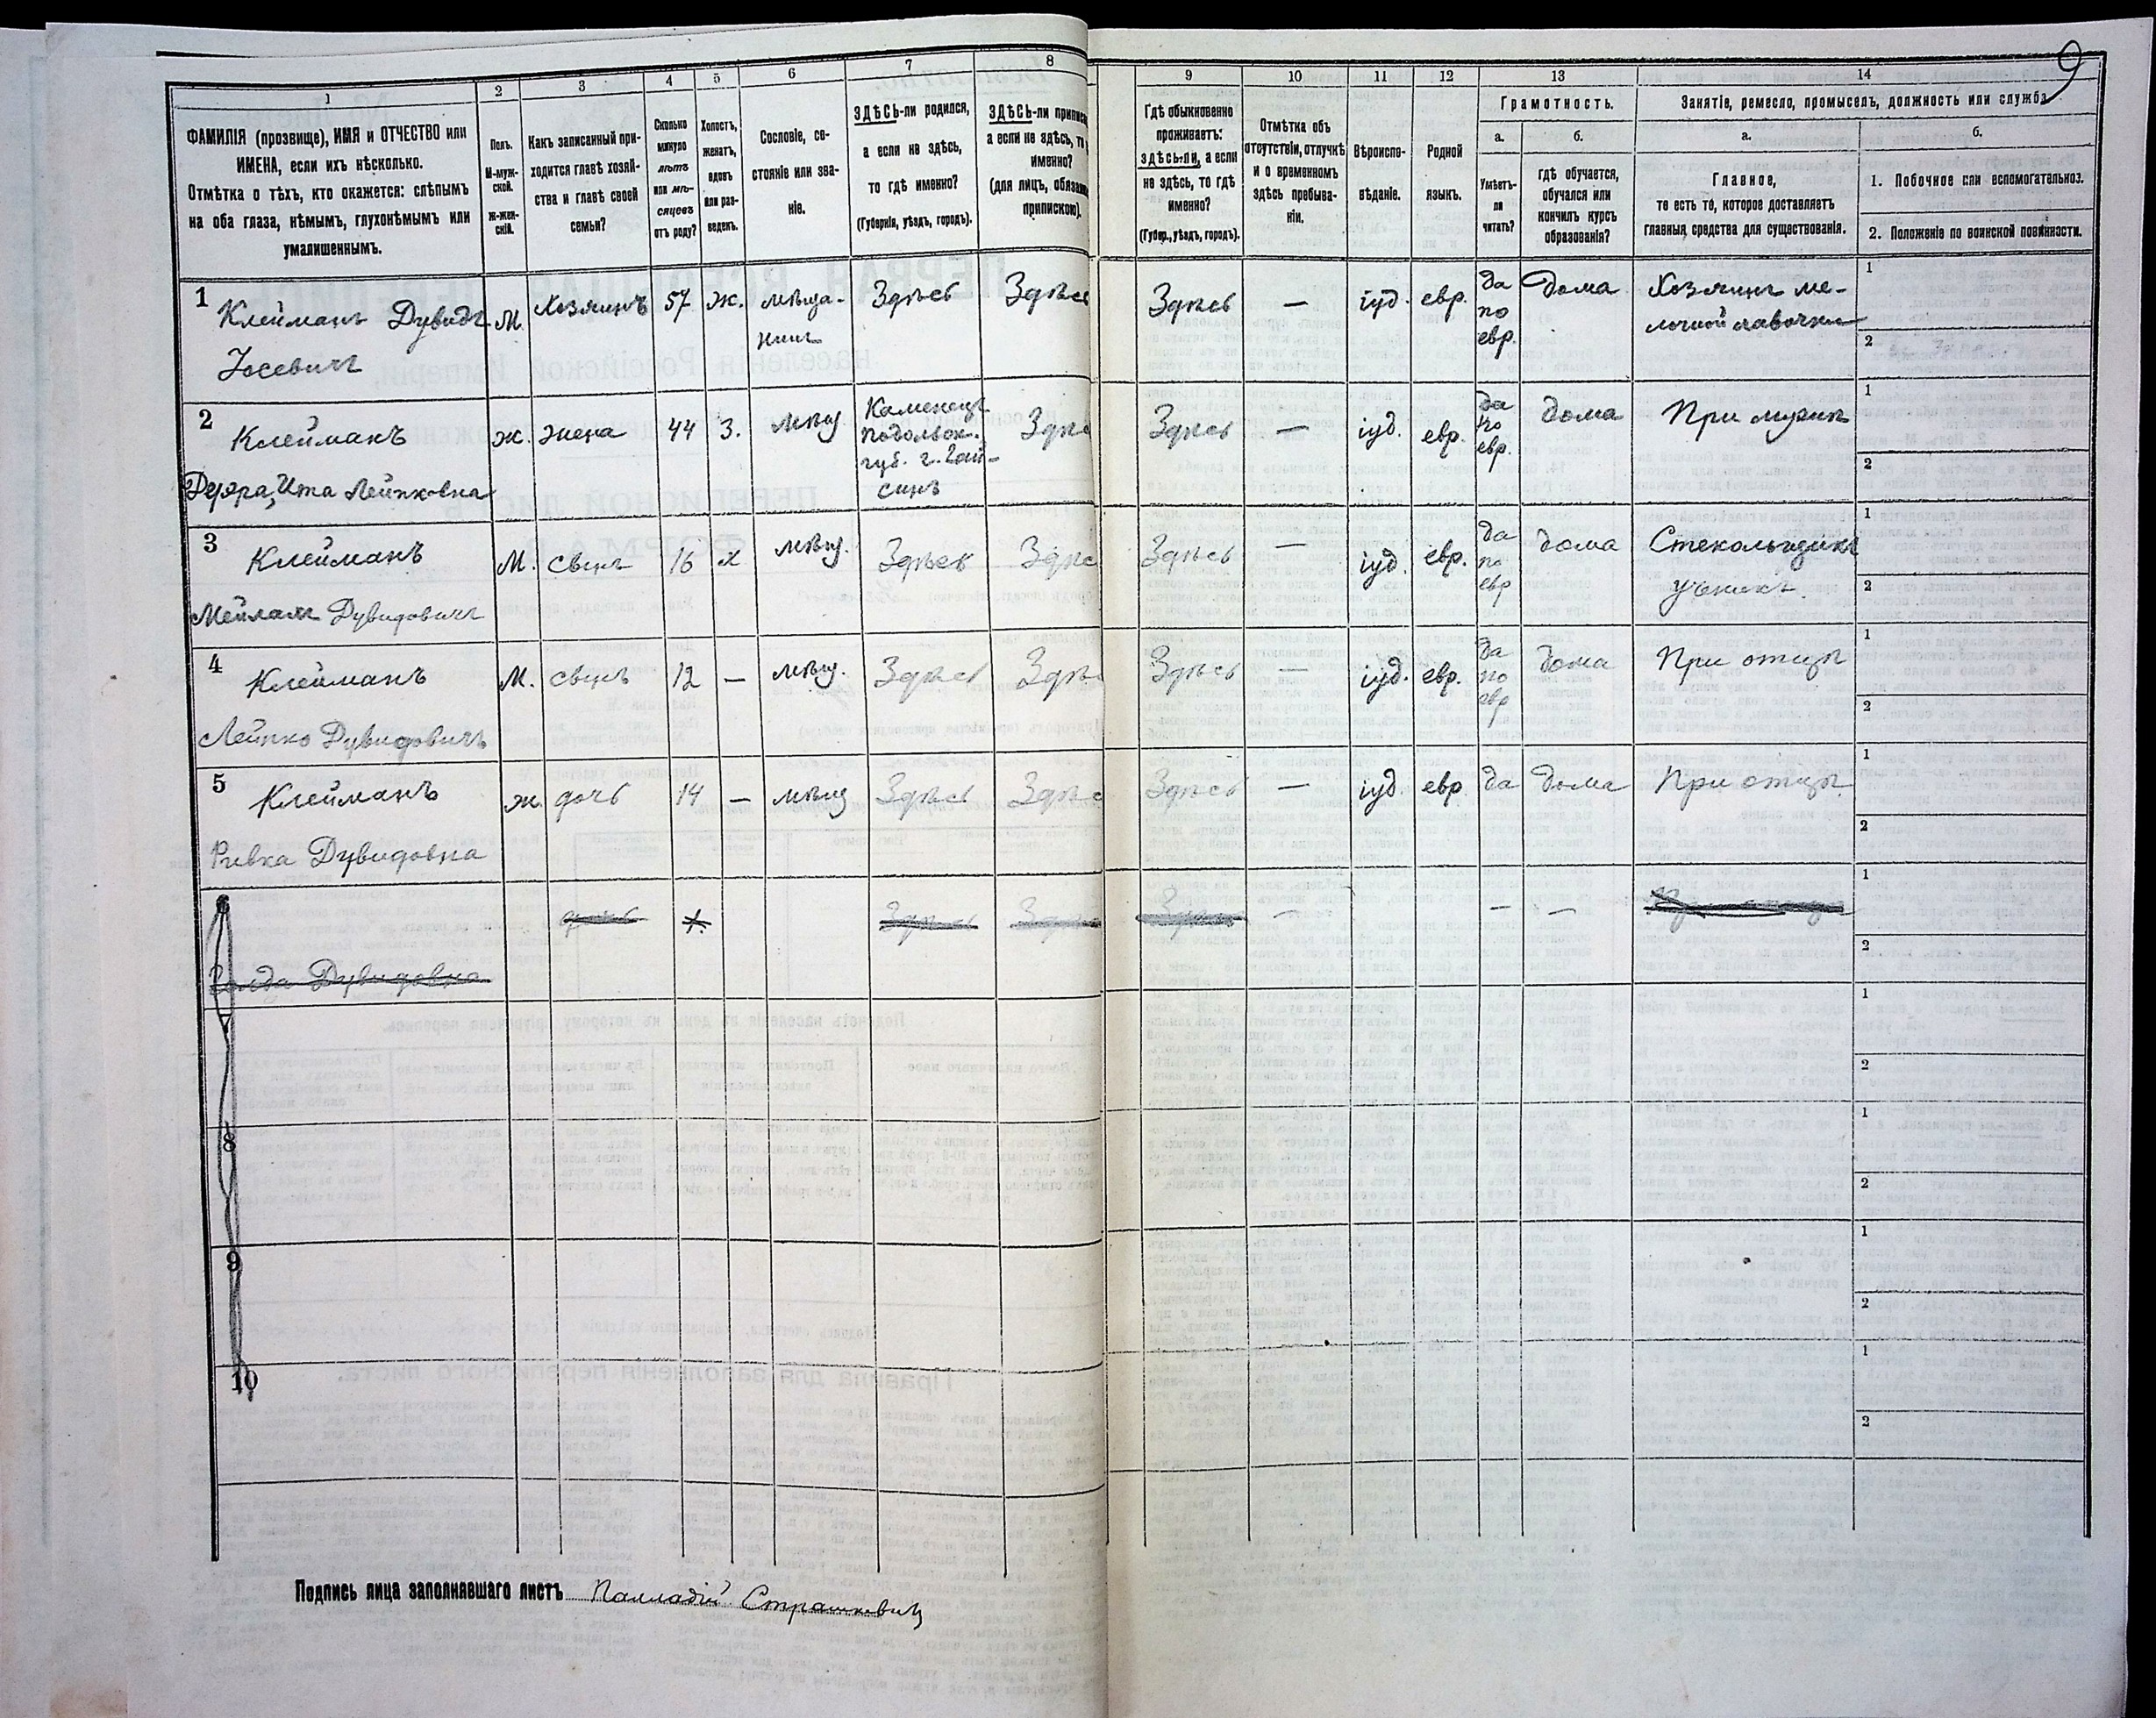 9
1
ФАМИЛІЯ (прозвище), ИМЯ и ОТЧЕСТВО или
ИМЕНА, если ихъ нѣсколько.
Отмѣтка о тѣхъ, кто окажется: слѣпымъ
на оба глаза, нѣмымъ, глухонѣмымъ или
умалишеннымъ.
2
Полъ.
М-муж-
ской.
Ж-жен-
скій.
3
Какъ записанный при-
ходится главѣ хозяй-
ства и главѣ своей
семьи?
4
Сколько
минуло
лѣтъ
или мѣ-
сяцевъ
отъ роду?
5
Холостъ,
женатъ,
вдовъ
или раз-
веденъ.
6
Сословіе, со-
стояніе или зва-
ніе.
7
ЗДѢСЬ-ли родился,
а если не здѣсь,
то гдѣ именно?
(Губернія, уѣздъ, городъ).
8
ЗДѢСЬ-ли припис
а если не здѣсь, то
именно?
(для лицъ, обяза
припискою).
9
Гдѣ обыкновенно
проживаетъ:
здѣсь-ли, а если
не здѣсь, то гдѣ
именно?
(Губер., уѣздъ, городъ).
10
Отмѣтка объ
отсутствіи, отлучкѣ
и о временномъ
здѣсь пребыва-
ніи.
11
Вѣроиспо-
вѣданіе.
12
Родной
языкъ.
13
Грамотность.
а.
Умѣетъ-
ли
читать?
б.
гдѣ обучается,
обучался или
кончилъ курсъ
образованія?
14
Занятіе, ремесло, промыселъ, должность или служба
а.
Главное,
то есть то, которое доставляетъ
главныя средства для существованія.
б.
1. Побочное или вспомогательное.
2. Положеніе по воинской повинности.
1 Клейманъ Дувидъ М. Хозяинъ 57 ж. мѣща- Здѣсь Здѣсь Здѣсь — іуд. евр. да дома Хозяинъ ме- 1
Іосевичъ нинъ по лочной лавочки
евр. 2
2 Клейманъ ж. жена 44 З. мѣщ Каменецъ Здѣ Здѣсь — іуд. евр. да дома При мужѣ 1
Подольск. по
Дефра, Ита Лейпковна губ. г. Гай- евр. 2
синъ
3 Клейманъ М. сынъ 16 х мѣщ. Здѣсь Здѣс Здѣсь — іуд. евр. да дома Стекольщикъ 1
по
Мейламъ Дувидовичъ евр ученикъ. 2
4 Клейманъ М. сынъ 12 — мѣщ. Здѣсь Здѣ Здѣсь — іуд. евр. да дома При отцѣ 1
по
Лейпко Дувидовичъ евр 2
5 Клейманъ ж. дочь 14 — мѣщ Здѣсь Здѣс Здѣсь — іуд евр. да дома При отцѣ 1
Ривка Дувидовна 2
дочь Здѣсь Здѣс Здѣсь — — — 1
Дувидовна 2
7 1
2
8 1
2
9 1
2
10 1
2
Подпись лица заполнявшаго листъ Палладій Страшкевич